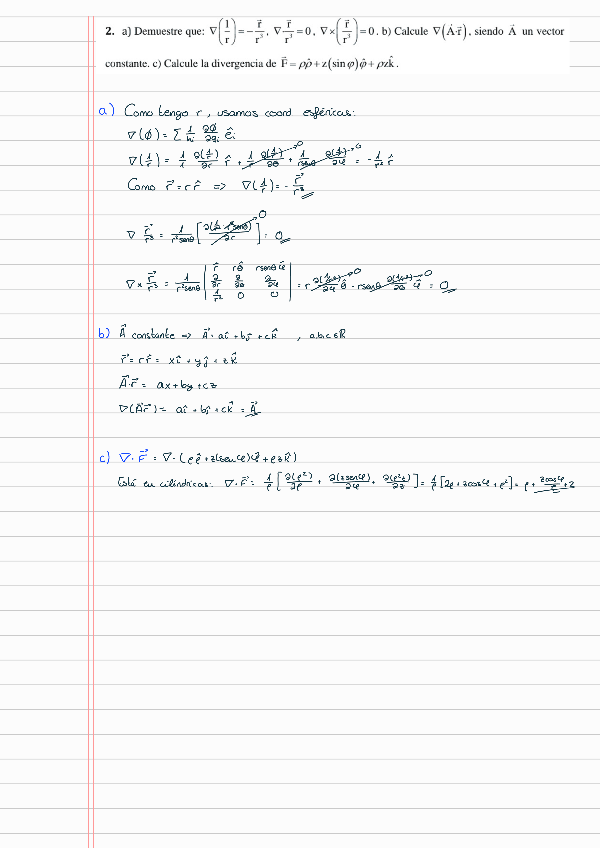 2. a) Demuestre que: ∇(1/r) = −r⃗/r³, ∇ r⃗/r³ = 0, ∇×(r⃗/r³) = 0. b) Calcule ∇(A⃗·r⃗), siendo A⃗ un vector
constante. c) Calcule la divergencia de F⃗ = ρρ̂ + z(sin φ)φ̂ + ρzk̂.
a) Como tengo r, usamos coord esféricas:
∇(φ) = Σ 1/hᵢ ∂φ/∂qᵢ êᵢ
∇(1/r) = 1/1 ∂(1/r)/∂r r̂ + 1/r ∂(1/r)/∂θ + 1/(r senθ) ∂(1/r)/∂φ = −1/r² r̂
Como r⃗ = r r̂ ⇒ ∇(1/r) = −r⃗/r³
∇ r⃗/r³ = 1/(r² senθ) [∂(1/r² · r² senθ)/∂r] = 0
r̂ rθ̂ r senθ φ̂
∇× r⃗/r³ = 1/(r² senθ) | ∂/∂r ∂/∂θ ∂/∂φ | = r ∂(1/r²)/∂φ θ̂ − r senθ ∂(1/r²)/∂θ φ̂ = 0
1/r² 0 0
b) A⃗ constante ⇒ A⃗ = aî + bĵ + ck̂ , a,b,c ∈ ℝ
r⃗ = r r̂ = xî + yĵ + zk̂
A⃗·r⃗ = ax + by + cz
∇(A⃗r⃗) = aî + bĵ + ck̂ = A⃗
c) ∇·F⃗ = ∇·(ρρ̂ + z(senφ)φ̂ + ρzk̂)
Está en cilíndricas: ∇·F⃗ = 1/ρ [∂(ρ²)/∂ρ + ∂(z senφ)/∂φ + ∂(ρ²z)/∂z] = 1/ρ [2ρ + z cosφ + ρ²] = ρ + z cosφ/ρ + 2